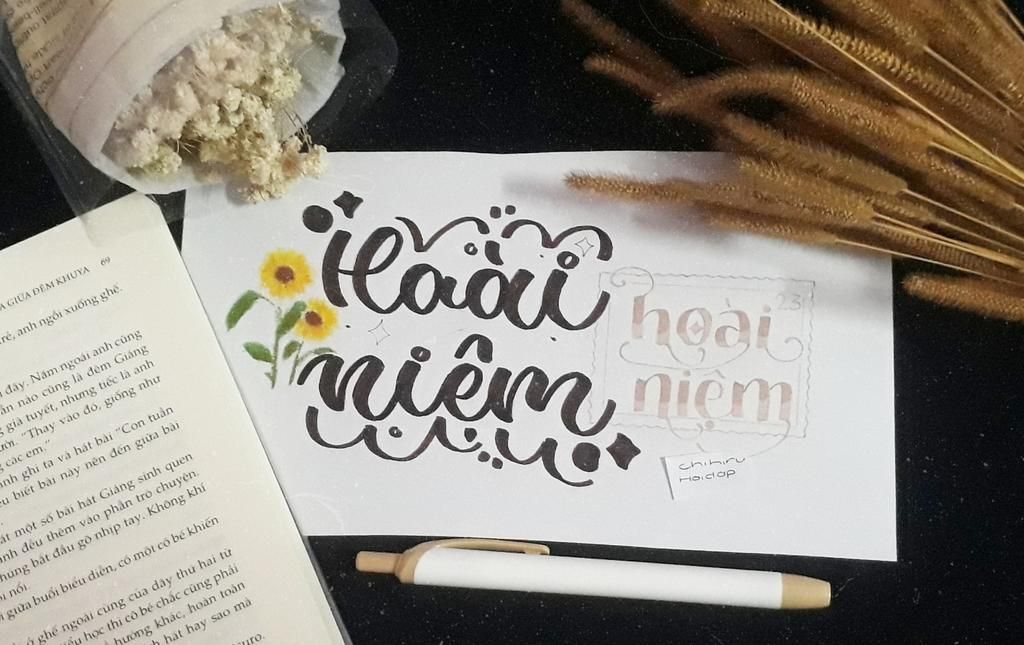 Hoài
niệm
23
hoài
niệm
chihiru
Hoidap
A GIỮA ĐÊM KHUYA 69
rẻ, anh ngồi xuống ghế.
đây. Năm ngoái anh cũng
ần nào cũng là đêm Giáng
g giá tuyết, nhưng tiếc là anh
ười. "Thay vào đó, giống như
g các em."
ành ghi ta và hát bài "Con tuần
ều biết bài này nên đến giữa bài
át một số bài hát Giáng sinh quen
ình đều thêm vào phần trò chuyện.
hứng bắt đầu gõ nhịp tay. Không khí
i nổi.
giữa buổi biểu diễn, có một cô bé khiến
ở ghế ngoài cùng của dãy thứ hai từ
iểu học thì cô bé chắc cũng phải
hướng khác, hoàn toàn
h hát hay sao mà
uro.